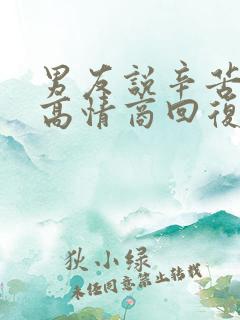 男友說辛苦
高情商回復
狄小绿
未经同意禁止转载